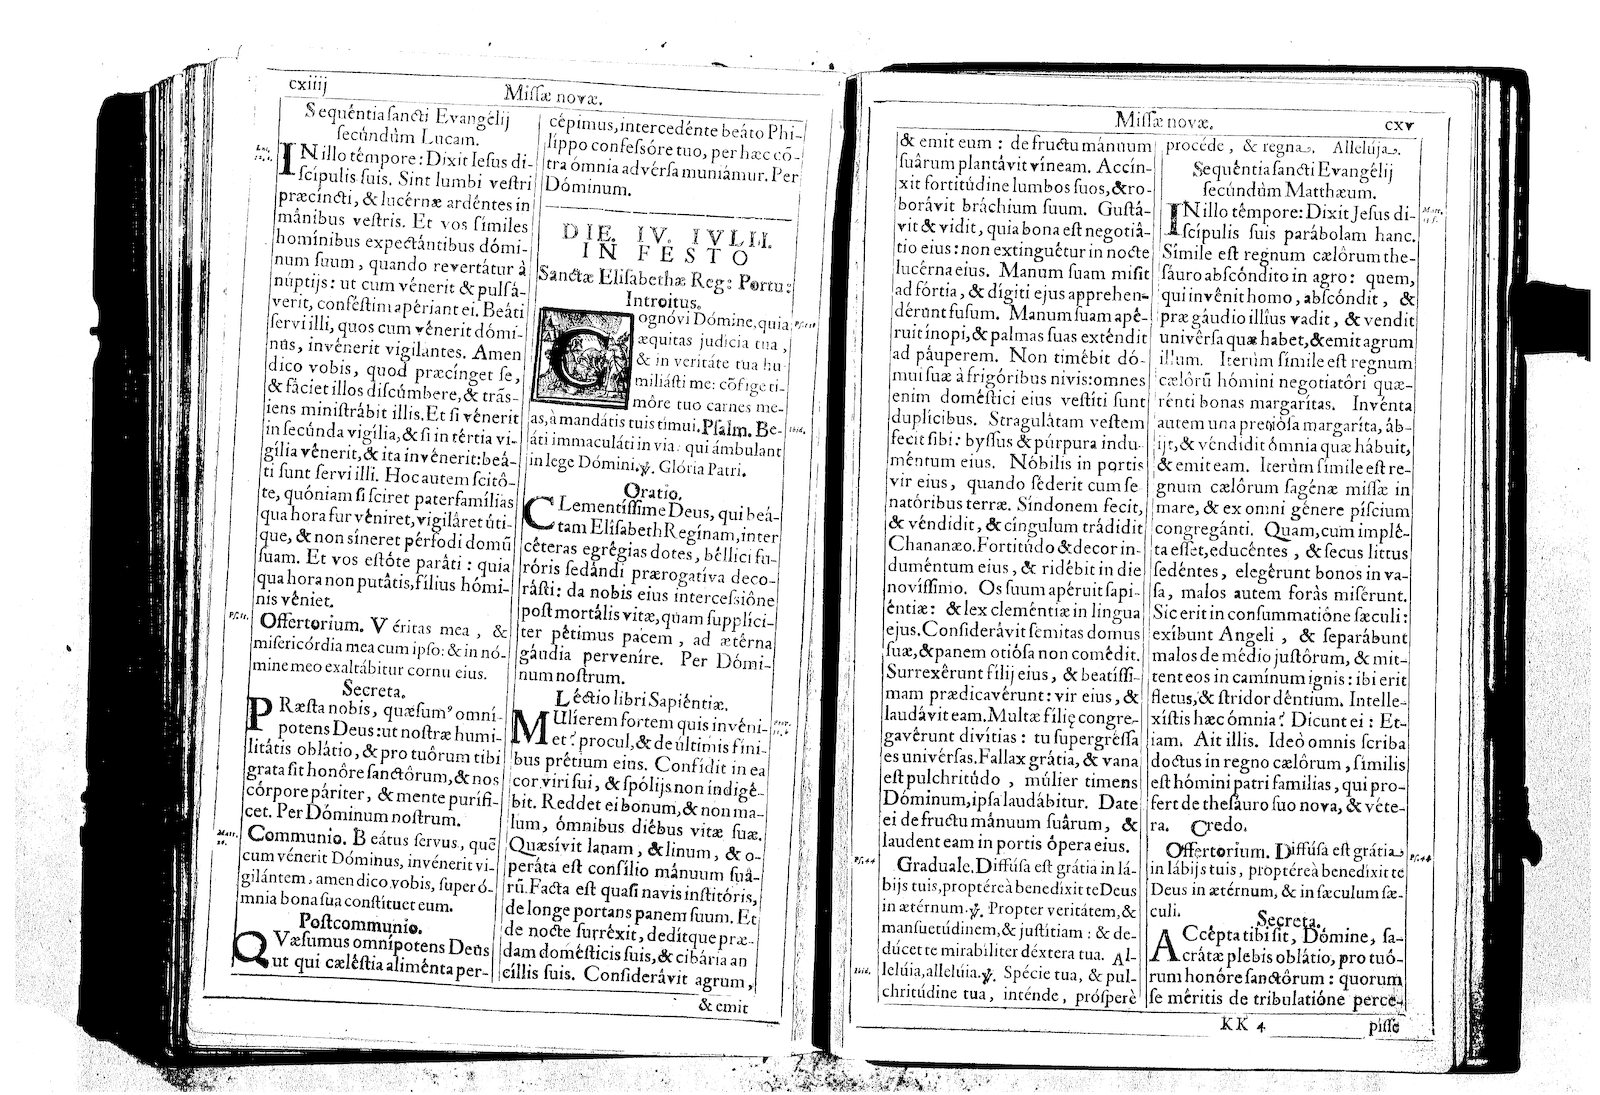 cxiiij
Missæ novæ.
Sequéntia sancti Evangélij
secúndùm Lucam.
IN illo témpore: Dixit Iesus di-
scípulis suis. Sint lumbi vestri
præcíncti, & lucérnæ ardéntes in
mánibus vestris. Et vos símiles
homínibus expectántibus dómi-
num suum, quando revertátur à
núptijs: ut cum vénerit & pulsá-
verit, conféstim apériant ei. Beáti
servi illi, quos cum vénerit dómi-
nus, invénerit vigilantes. Amen
dico vobis, quod præcínget se,
& fáciet illos discúmbere, & trãs-
iens ministrábit illis. Et si vénerit
in secúnda vigília, & si in tértia vi-
gília vénerit, & ita invénerit: beá-
ti sunt servi illi. Hoc autem scitô-
te, quóniam si sciret paterfamílias
qua hora fur véniret, vigiláret úti-
que, & non síneret pérfodi domũ
suam. Et vos estôte paráti: quia
qua hora non putâtis, fílius hómi-
nis véniet.
Offertorium. Véritas mea, &
misericórdia mea cum ipso: & in nó-
mine meo exaltábitur cornu eius.
Secreta.
PRæsta nobis, quæsumꝰ omní-
potens Deus: ut nostræ humi-
litátis oblátio, & pro tuôrum tibi
grata sit honôre sanctôrum, & nos
córpore páriter, & mente purífi-
cet. Per Dóminum nostrum.
Communio. Beátus servus, quẽ
cum vénerit Dóminus, invénerit vi-
gilántem, amen dico vobis, super ó-
mnia bona sua constítuet eum.
Postcommunio.
QVæsumus omnípotens Deus
ut qui cæléstia aliménta per-
cépimus, intercedénte beáto Phi-
líppo confessóre tuo, per hæc cõ-
tra ómnia advérsa muniámur. Per
Dóminum.
DIE. IV. IVLII.
IN FESTO
Sanctæ Elisabethæ Reg: Portu:
Introitus.
Cognóvi Dómine, quia
æquitas judicia tua,
& in veritáte tua hu
miliásti me: cõfige ti-
môre tuo carnes me-
as, à mandátis tuis timui. Psalm. Be-
áti immaculáti in via: qui ámbulant
in lege Dómini. ℣. Glória Patri.
Oratio.
CLementíssime Deus, qui beá-
tam Elísabeth Regínam, inter
céteras egrégias dotes, béllici fu-
róris sedándi prærogatíva deco-
rásti: da nobis eius intercessiône
post mortális vitæ, quam supplíci-
ter pétimus pacem, ad ætérna
gáudia perveníre. Per Dómi-
num nostrum.
Léctio libri Sapiéntiæ.
MUlíerem fortem quis invéni-
et? procul, & de últimis fíni-
bus prétium eins. Confídit in ea
cor viri sui, & spólijs non indigê-
bit. Reddet ei bonum, & non ma-
lum, ómnibus diébus vitæ suæ.
Quæsívit lanam, & linum, & o-
peráta est consílio mánuum suâ-
rũ. Facta est quasi navis institóris,
de longe portans panem suum. Et
de nocte surréxit, dedítque præ-
dam domésticis suis, & cibária an
cíllis suis. Considerávit agrum,
& emit
Missæ novæ.
cxv
& emit eum: de fructu mánuum
suârum plantávit víneam. Accín-
xit fortitúdine lumbos suos, & ro-
borávit bráchium suum. Gustá-
vit & vidit, quia bona est negotiâ-
tio eius: non extinguétur in nocte
lucérna eius. Manum suam misit
ad fórtia, & dígiti ejus apprehen-
dérunt fusum. Manum suam apé-
ruit ínopi, & palmas suas exténdit
ad páuperem. Non timébit dó-
mui suæ à frigóribus nivis: omnes
enim doméstici eius vestíti sunt
duplícibus. Stragulátam vestem
fecit sibi: byssus & púrpura indu-
méntum eius. Nóbilis in portis
vir eius, quando séderit cum se
natóribus terræ. Síndonem fecit,
& véndidit, & cíngulum trádidit
Chananæo. Fortitúdo & decor in-
duméntum eius, & ridébit in die
novíssimo. Os suum apéruit sapi-
éntiæ: & lex cleméntiæ in lingua
ejus. Considerávit semitas domus
suæ, & panem otiósa non comédit.
Surrexérunt fílij eius, & beatíssi-
mam prædicavérunt: vir eius, &
laudávit eam. Multæ fílię congre-
gavérunt divítias: tu supergréssa
es univérsas. Fallax grátia, & vana
est pulchritúdo, múlier timens
Dóminum, ipsa laudábitur. Date
ei de fructu mánuum suârum, &
laudent eam in portis ópera eius.
Graduale. Diffúsa est grátia in lá-
bijs tuis, proptéreà benedíxit te Deus
in ætérnum. ℣. Propter veritátem, &
mansuetúdinem, & justítiam: & de-
dúcet te mirabíliter déxtera tua. Al-
lelúia, allelúia. ℣. Spécie tua, & pul-
chritúdine tua, inténde, próspere
procéde, & regna. Allelúja.
Sequéntia sancti Evangélij
secúndùm Matthæum.
IN illo témpore: Dixit Jesus di-
scípulis suis parábolam hanc.
Símile est regnum cælôrum the-
sáuro abscóndito in agro: quem,
qui invénit homo, abscóndit, &
præ gáudio illíus vadit, & vendit
univérsa quæ habet, & emit agrum
illum. Iterùm símile est regnum
cælórũ hómini negotiatóri quæ-
rénti bonas margarítas. Invénta
autem una pretiósa margaríta, áb-
ijt, & véndidit ómnia quæ hábuit,
& emit eam. Iterùm símile est re-
gnum cælôrum sagénæ missæ in
mare, & ex omni génere píscium
congregánti. Quam, cum implê-
ta esset, educéntes, & secus littus
sedéntes, elegérunt bonos in va-
sa, malos autem foràs misérunt.
Sic erit in consummatióne sæculi:
exíbunt Angeli, & separábunt
malos de médio justôrum, & mit-
tent eos in camínum ignis: ibi erit
fletus, & stridor déntium. Intelle-
xístis hæc ómnia? Dicunt ei: Et-
iam. Ait illis. Ideò omnis scriba
doctus in regno cælôrum, símilis
est hómini patri familias, qui pro-
fert de thesáuro suo nova, & véte-
ra. Credo.
Offertorium. Diffúsa est grátia
in lábijs tuis, proptéreà benedíxit te
Deus in ætérnum, & in sæculum sæ-
culi.
Secreta.
ACcépta tibi sit, Dómine, sa-
crátæ plebis oblátio, pro tuó-
rum honóre sanctôrum: quorum
se méritis de tribulatióne percé-
KK 4
pisse